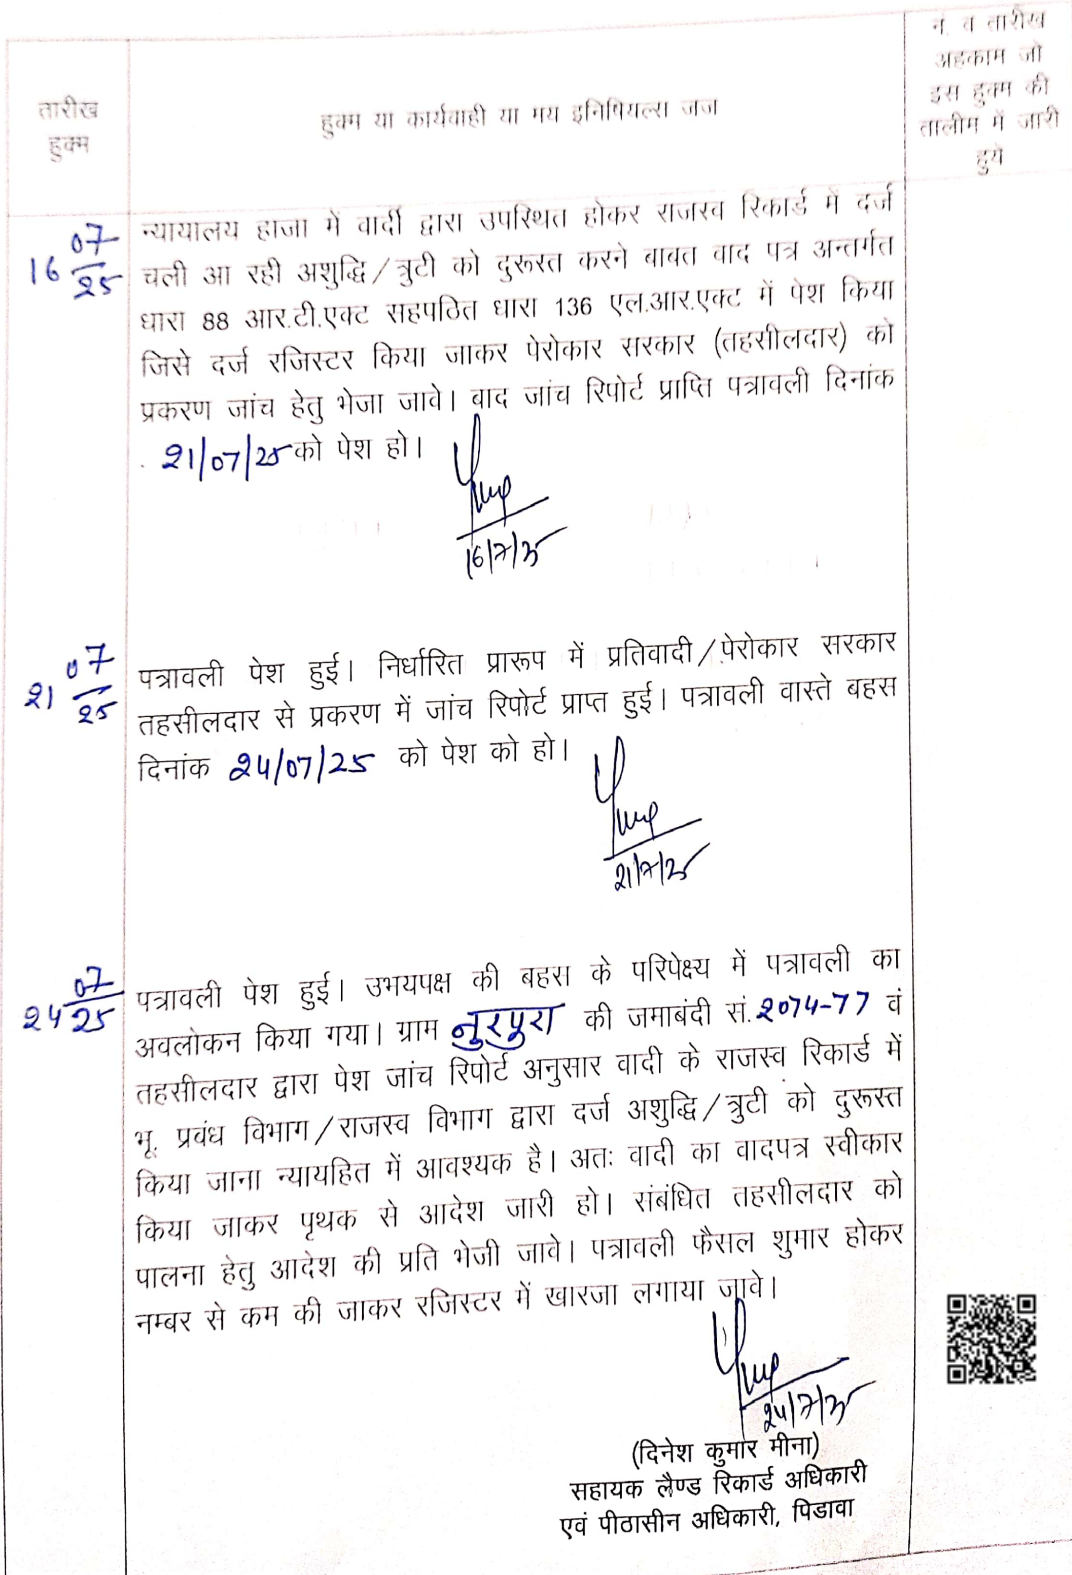 तारीख
हुक्म
हुक्म या कार्यवाही या मय इनिषियल्स जज
न. व तारीख
अहकाम जो
इस हुक्म की
तालीम में जारी
हुये
16 07/25
न्यायालय हाजा में वादी द्वारा उपस्थित होकर राजस्व रिकार्ड में दर्ज
चली आ रही अशुद्धि/त्रुटी को दुरूस्त करने बावत वाद पत्र अन्तर्गत
धारा 88 आर.टी.एक्ट सहपठित धारा 136 एल.आर.एक्ट में पेश किया
जिसे दर्ज रजिस्टर किया जाकर पेरोकार सरकार (तहसीलदार) को
प्रकरण जांच हेतु भेजा जावे। बाद जांच रिपोर्ट प्राप्ति पत्रावली दिनांक
21/07/25 को पेश हो।
16/7/25
21 07/25
पत्रावली पेश हुई। निर्धारित प्रारूप में प्रतिवादी/पेरोकार सरकार
तहसीलदार से प्रकरण में जांच रिपोर्ट प्राप्त हुई। पत्रावली वास्ते बहस
दिनांक 24/07/25 को पेश को हो।
21/7/25
24 07/25
पत्रावली पेश हुई। उभयपक्ष की बहस के परिपेक्ष्य में पत्रावली का
अवलोकन किया गया। ग्राम नुरपुरा की जमाबंदी सं. 2074-77 वं
तहसीलदार द्वारा पेश जांच रिपोर्ट अनुसार वादी के राजस्व रिकार्ड में
भू. प्रवंध विभाग/राजस्व विभाग द्वारा दर्ज अशुद्धि/त्रुटी को दुरूस्त
किया जाना न्यायहित में आवश्यक है। अतः वादी का वादपत्र स्वीकार
किया जाकर पृथक से आदेश जारी हो। संबंधित तहसीलदार को
पालना हेतु आदेश की प्रति भेजी जावे। पत्रावली फैसल शुमार होकर
नम्बर से कम की जाकर रजिस्टर में खारजा लगाया जावे।
24/7/25
(दिनेश कुमार मीना)
सहायक लैण्ड रिकार्ड अधिकारी
एवं पीठासीन अधिकारी, पिडावा